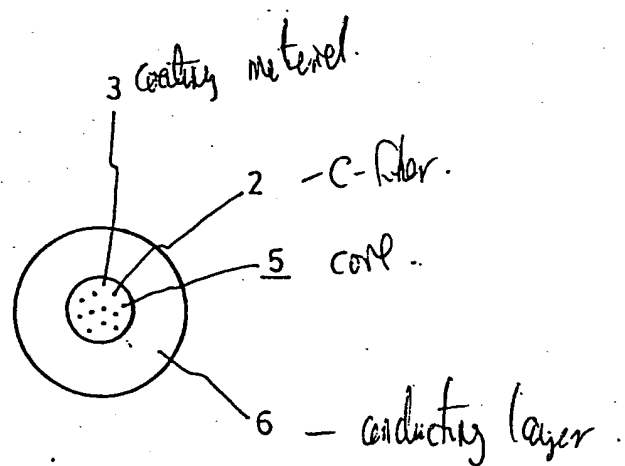 3 coating material.
2 - C-fiber.
5 core.
6 - conducting layer.